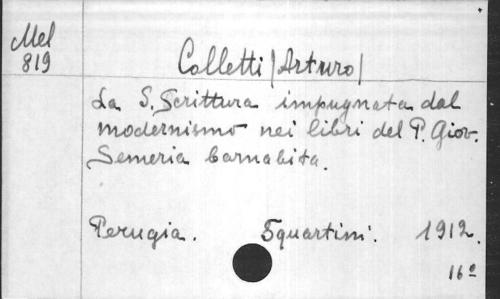 Mel
819
Colletti (Arturo)
La S. Scrittura impugnata dal
modernismo nei libri del P. Giov.
Semeria barnabita.
Perugia. Squartini. 1912.
16º